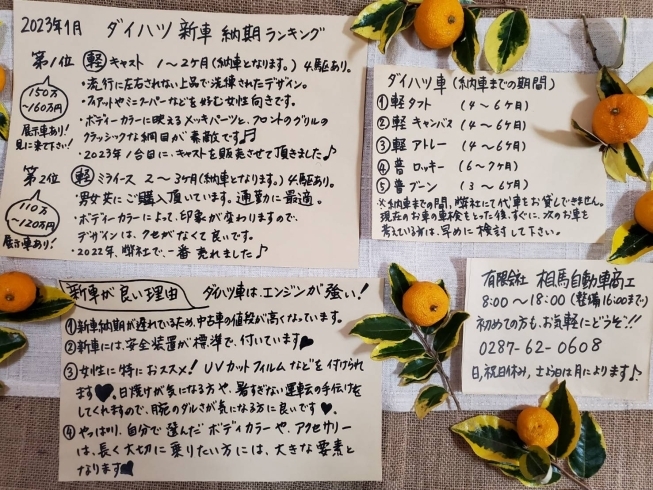 2023年1月 ダイハツ新車 納期ランキング
第1位 軽 キャスト 1〜2ケ月(納車となります。) 4駆あり。
150万
〜160万円
展示車あり!
見に来て下さい!
・流行に左右されない上品で洗練されたデザイン。
・フィアットやミニクーパーなどを好む女性向きです。
・ボディーカラーに映えるメッキパーツと、フロントのグリルの
クラシックな網目が素敵です♬
・2023年1台目に、キャストを販売させて頂きました♪
第2位 軽 ミライース 2〜3ケ月(納車となります。) 4駆あり。
110万
〜120万円
展示車あり!
・男女共にご購入頂いています。通勤に最適。
・ボディーカラーによって、印象が変わりますので、
デザインは、クセがなくて良いです。
・2022年、弊社で、一番売れました♪
ダイハツ車(納車までの期間)
①軽 タフト (4〜6ケ月)
②軽 キャンバス (4〜6ケ月)
③軽 アトレー (4〜6ケ月)
④普 ロッキー (6〜7ケ月)
⑤普 ブーン (3〜6ケ月)
※納車までの間、弊社にて代車をお貸しできません。
現在のお車の車検をとった後、すぐに、次のお車を
考えている方は、早めに検討して下さい。
新車が良い理由 ダイハツ車は、エンジンが強い!
①新車納期が遅れているため、中古車の値段が高くなっています。
②新車には、安全装置が標準で、付いています♥
③女性に特におススメ! UVカットフィルムなどを付けられ
ます♥。日焼けが気になる方や、暑すぎない運転の手伝いを
してくれますので、腕のダルさが気になる方に良いです♥。
④やっぱり、自分で選んだボディカラーや、アクセサリー
は、長く大切に乗りたい方には、大きな要素と
なります♥
有限会社 相馬自動車商工
8:00〜18:00(整備16:00まで)
初めての方も、お気軽にどうぞ!!
0287-62-0608
日,祝日休み,土曜日は月によります♪